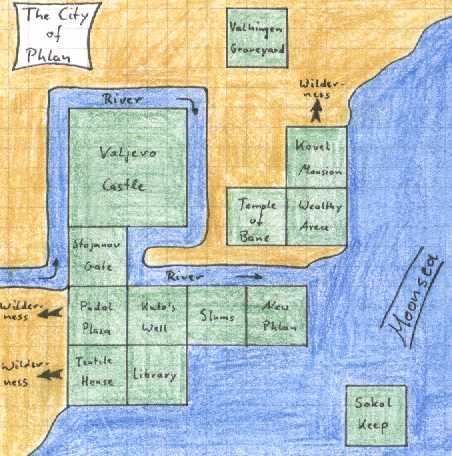 The City
of
Phlan
Valhingen
Graveyard
Wilder-
ness
River
Valjevo
Castle
Kovel
Mansion
Temple
of
Bane
Wealthy
Area
Stojanov
Gate
River
Wilder-
ness
Podol
Plaza
Kuto's
Well
Slums
New
Phlan
Moonsea
Wilder-
ness
Textile
House
Library
Sokol
Keep